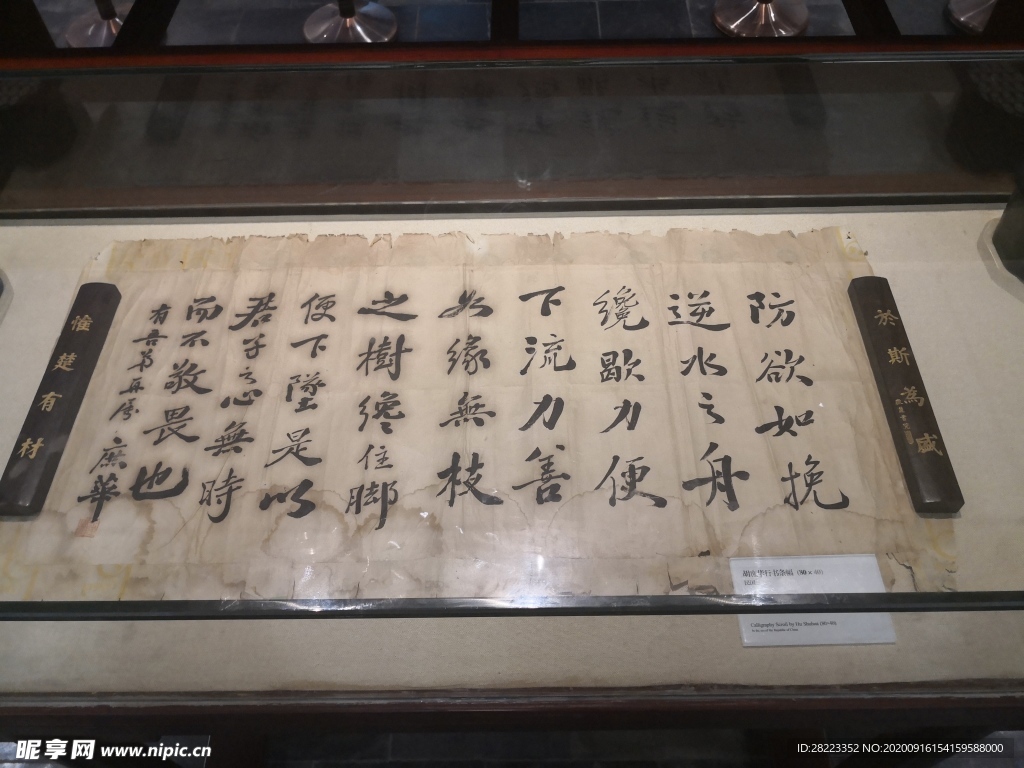 於斯為盛
防欲如挽
逆水之舟
纔歇力便
下流力善
如緣無枝
之樹纔住脚
便下墜是以
君子之心無時
而不敬畏也
庶華
惟楚有材
胡庶华行书条幅（90×40）
民国
Calligraphy Scroll by Hu Shuhua (90×40)
昵享网 www.nipic.cn
ID:28223352 NO:20200916154159588000